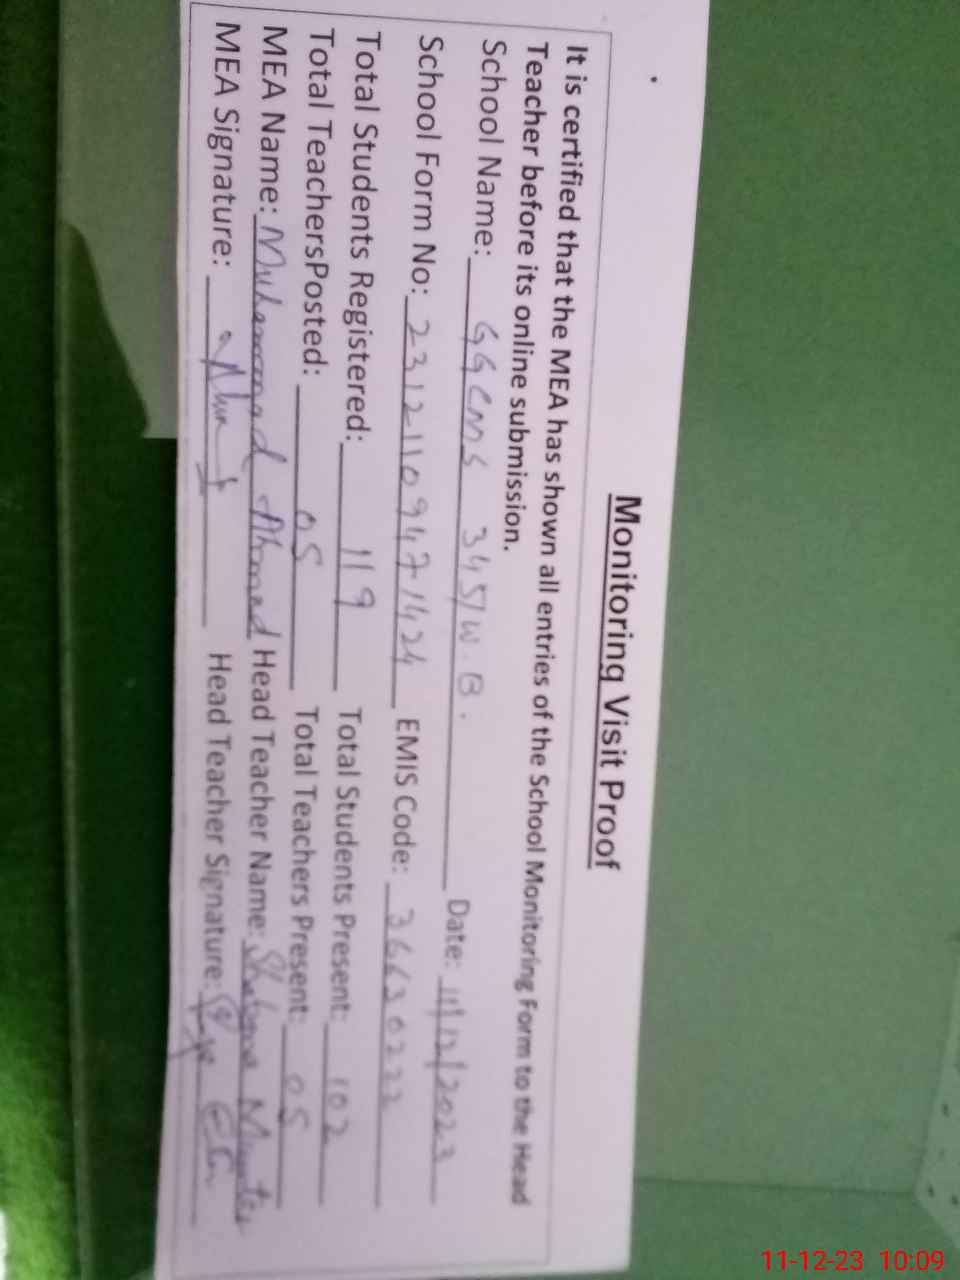 Monitoring Visit Proof
It is certified that the MEA has shown all entries of the School Monitoring Form to the Head
Teacher before its online submission.
School Name: GGCMS 345/W.B. Date: 11/12/2023
School Form No: 23121109471424 EMIS Code: 36630222
Total Students Registered: 119 Total Students Present: 102
Total TeachersPosted: 05 Total Teachers Present: 05
MEA Name: Muhammad Ahmed Head Teacher Name: Shabana Mumtaz
MEA Signature: Head Teacher Signature:
11-12-23 10:09